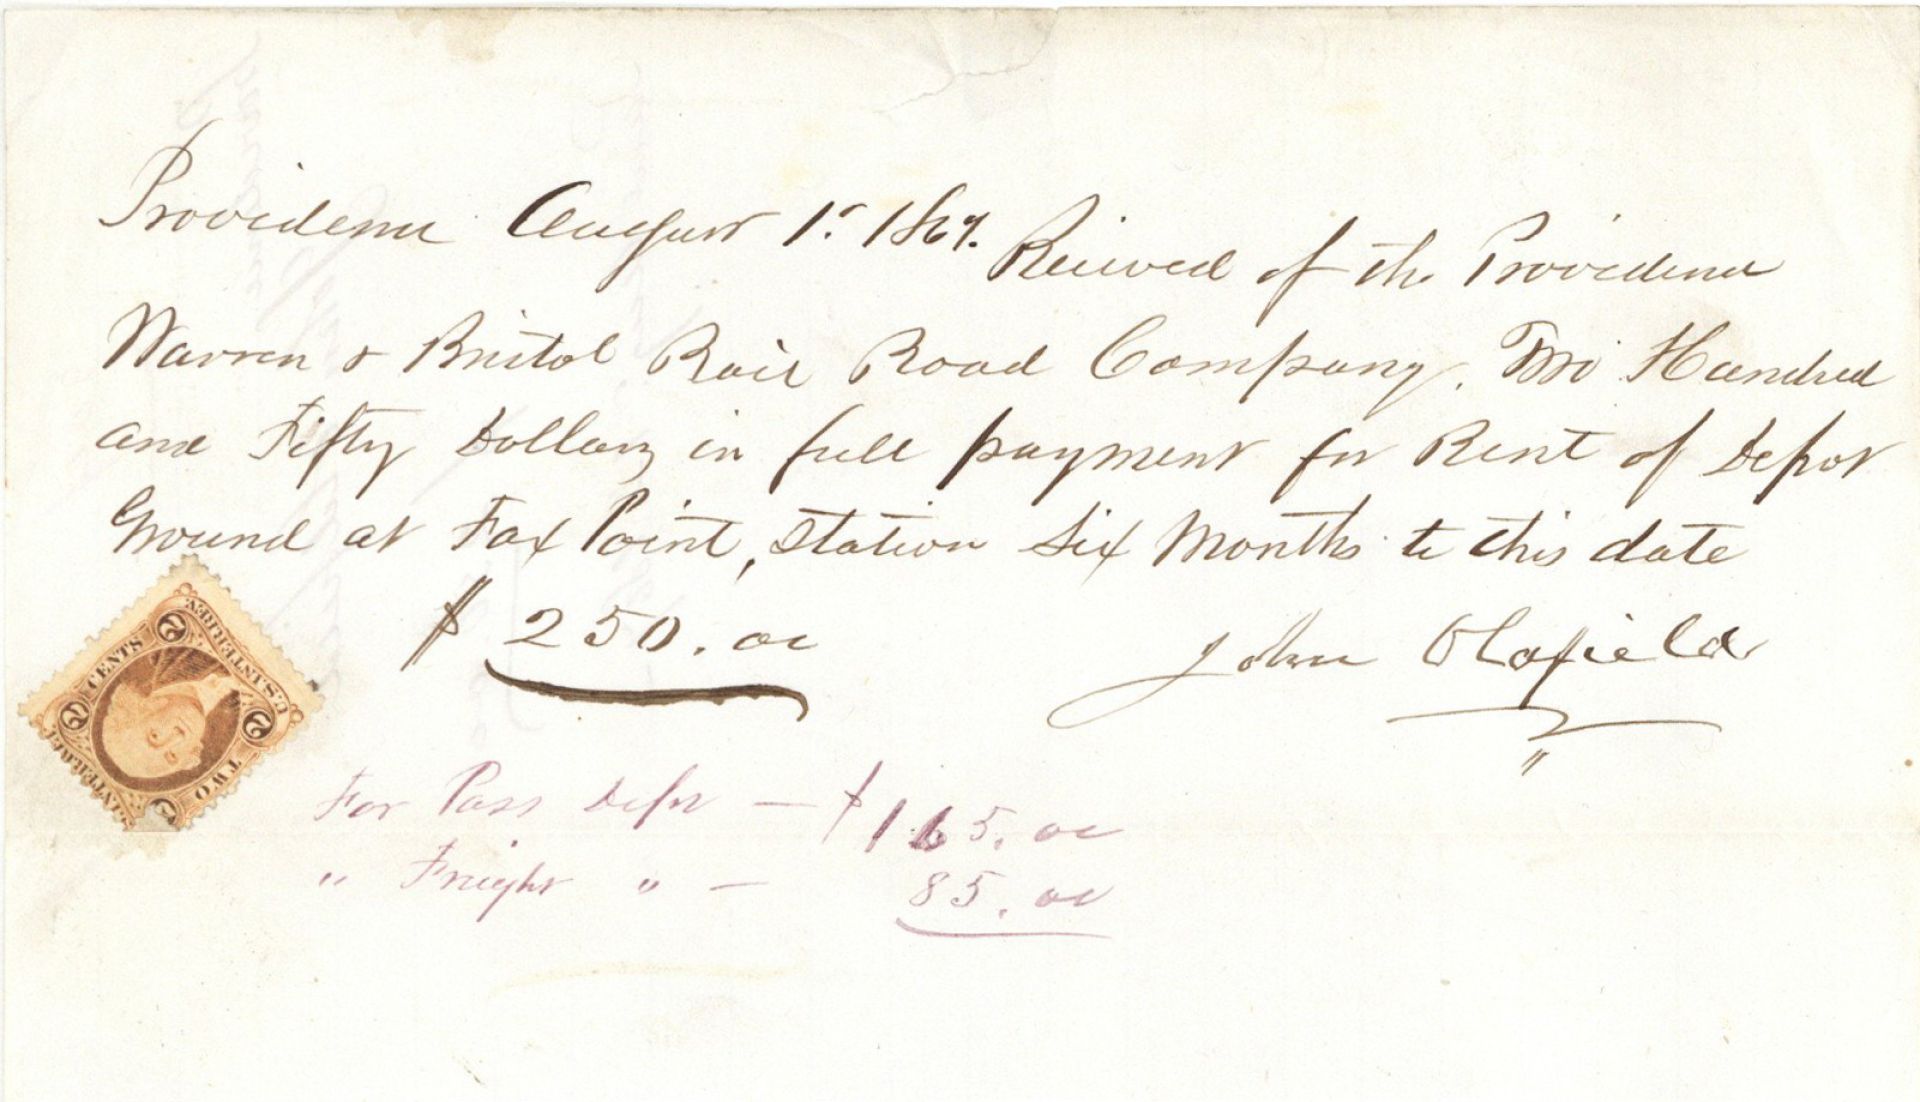 Providence August 1st. 1867. Received of the Providence
Warren & Bristol Rail Road Company. Two Hundred
and Fifty Dollars in full payment for Rent of Depot
Ground at Fox Point, Station Six Months to this date
$250.00 John Oldfield
For Pass Depot — $165.00
" Freight " — 85.00
U.S. INTER. REV.
2 CENTS 2
TWO